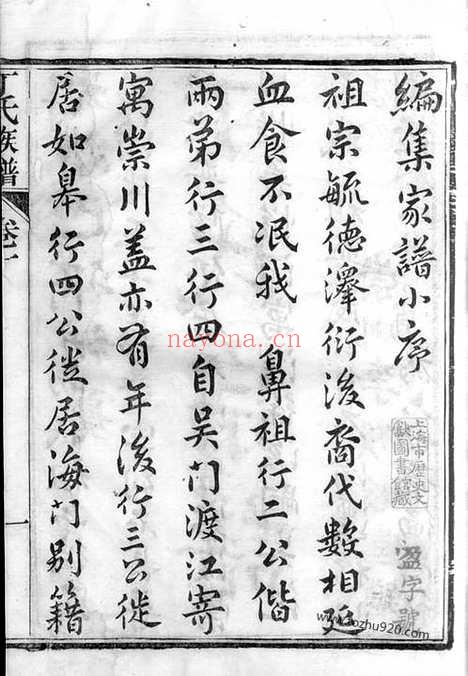 編集家譜小序
祖宗毓德澤衍後裔代數相延
血食不泯我 鼻祖行二公偕
兩弟行三行四自吴門渡江寄
寓崇川蓋亦有年後行三公徙
居如皋行四公徙居海門別籍
丁氏族譜 卷一 一
盈字號
上海市歷史文
獻圖書館藏
nayona.cn